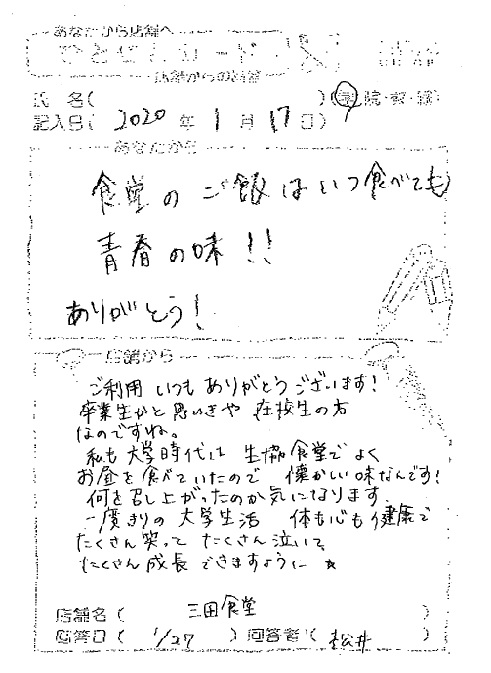 あなたから店舗へ
ひとことカード
店舗からの回答
氏 名( ) (学・院・教・職)
記入日( 2020 年 1 月 17 日)
あなたから
食堂のご飯はいつ食べても
青春の味!!
ありがとう!
店舗から
ご利用 いつも ありがとうございます!
卒業生かと思いきや 在校生の方
なのですね。
私も 大学時代は 生協食堂で よく
お昼を食べていたので 懐かしい味なんです!
何を召し上がったのか気になります
一度きりの 大学生活 体も心も健康で
たくさん笑って たくさん泣いて
たくさん成長 できますように ☆
店舗名( 三田食堂 )
回答日( 1/27 ) 回答者( 松井 )